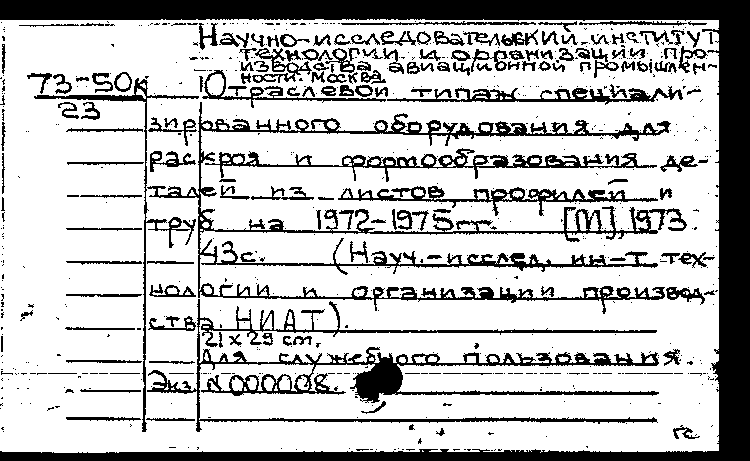 Научно-исследовательский институт
технологии и организации про-
изводства авиационной промышлен-
ности. Москва.
73-50к
23
Отраслевой типаж специали-
зированного оборудования для
раскроя и формообразования де-
талей из листов, профилей и
труб на 1972-1975гг. [М], 1973.
43с. (Науч.-исслед. ин-т тех-
нологии и организации производ-
ства. НИАТ).
21 x 29 см.
Для служебного пользования.
Экз. N000008.
гс